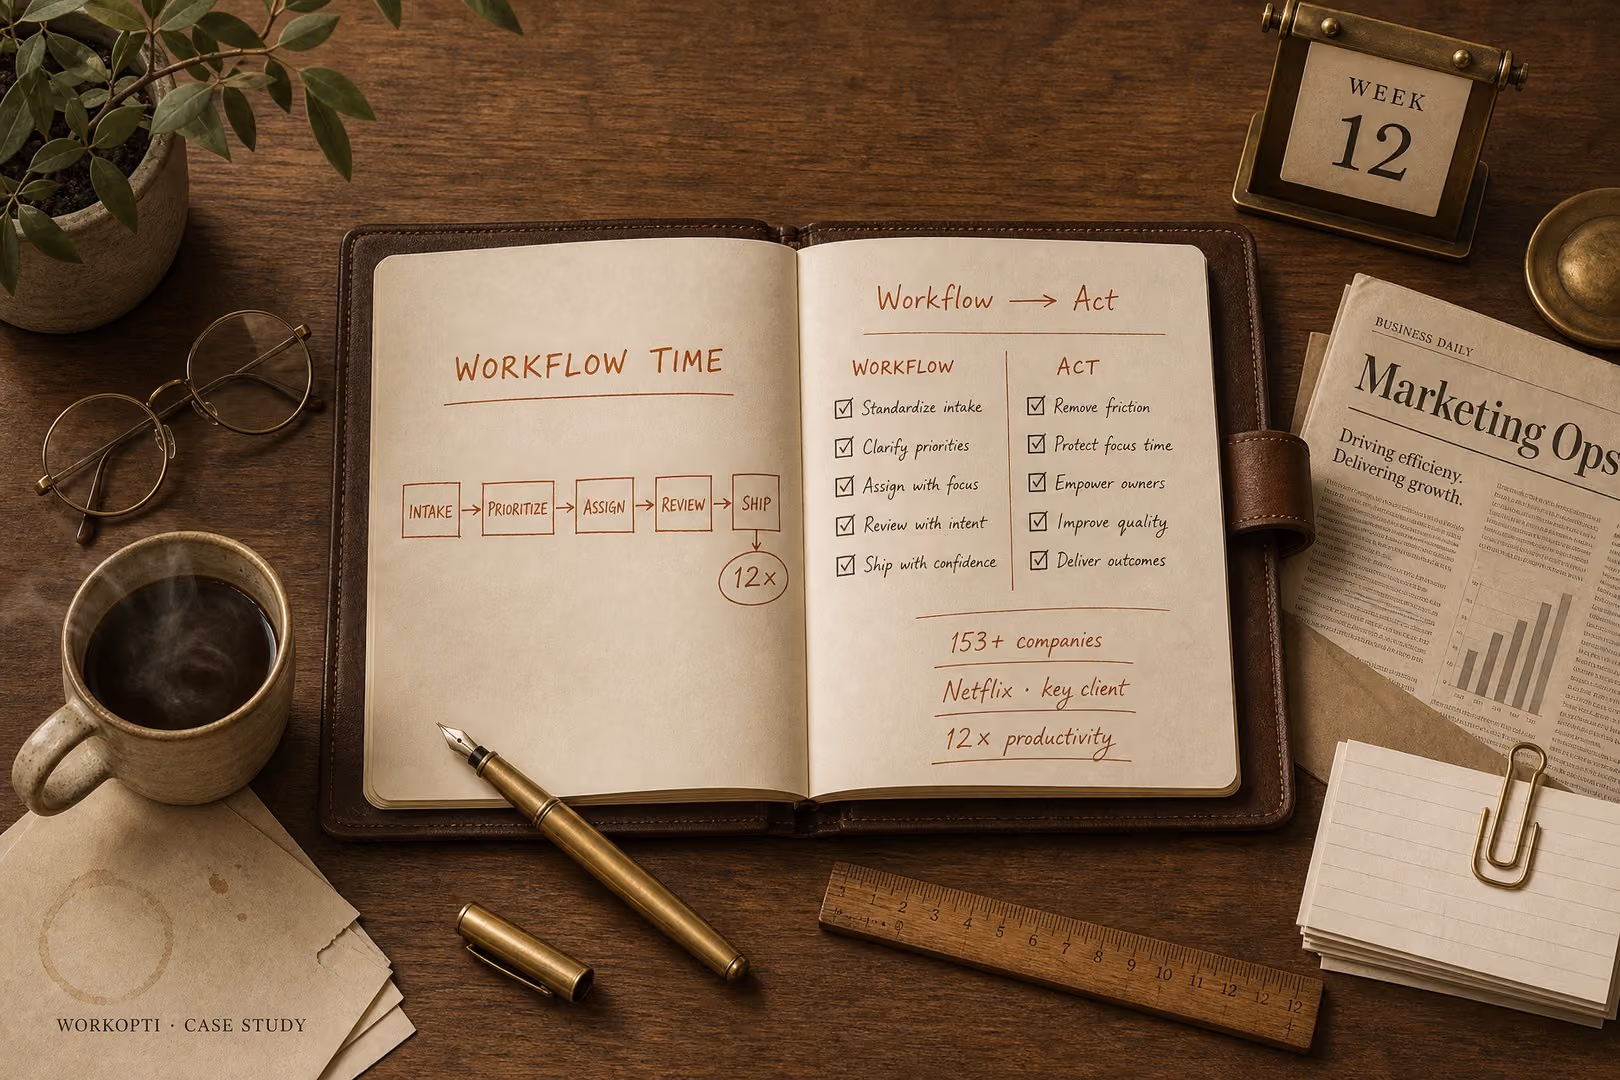 WEEK
12
WORKFLOW TIME
INTAKE → PRIORITIZE → ASSIGN → REVIEW → SHIP
12x
Workflow → Act
WORKFLOW
Standardize intake
Clarify priorities
Assign with focus
Review with intent
Ship with confidence
ACT
Remove friction
Protect focus time
Empower owners
Improve quality
Deliver outcomes
153+ companies
Netflix · key client
12x productivity
BUSINESS DAILY
Marketing Ops
Driving efficieny.
Delivering growth.
1 2 3 4 5 6 7 8 9 10 11 12 12 12
WORKOPTI · CASE STUDY